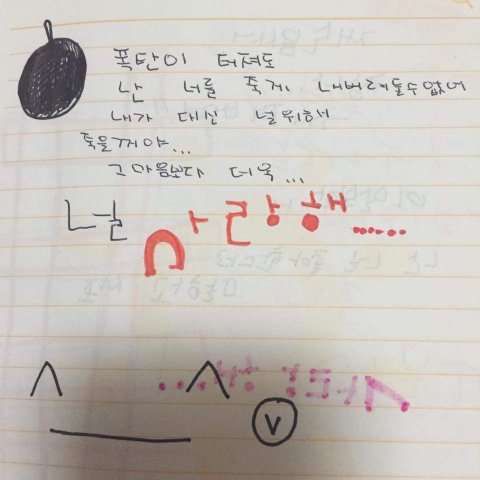 폭탄이 터져도
난 너를 죽게 내버려둘수없어
내가 대신 널위해
죽을꺼야...
그마음보다 더욱...
사랑해......
^ ^
V